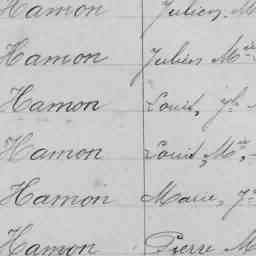 Hamon Julien, M
Hamon Julien Mie
Hamon Louis, Jh
Hamon Louis, Mie,
Hamon Marie,
Hamon Pierre M